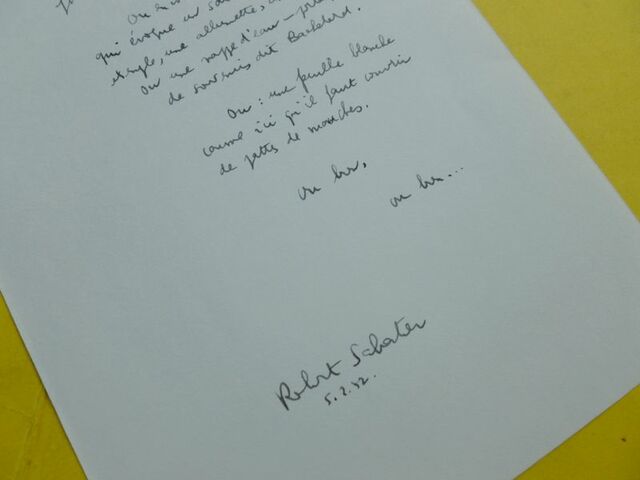 Ou
qui évoque un
exemple, une allumette,
ou une nappe d'eau –
de souvenirs dit Bachelard.
Ou : une feuille blanche
comme ici qu'il faut couvrir
de pattes de mouches.
ou bien,
ou bien...
Robert Sabatier
5.2.92.